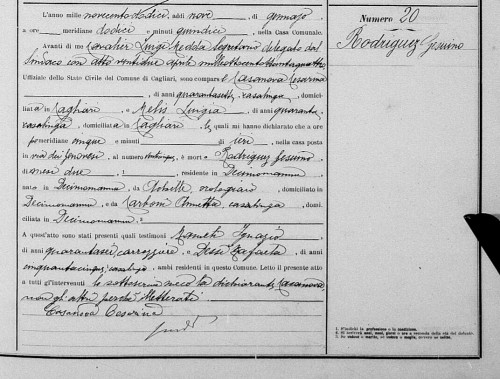 L'anno mille novecentododici, addì nove, di gennajo
a ore meridiane dodici e minuti quindici, nella Casa Comunale.
Avanti di me Cavalier Luigi Nedda Segretario delegato dal
Sindaco con atto ventidue aprile millottocentottantaquattro
Uffiziale dello Stato Civile del Comune di Cagliari, sono comparse Casanova Cesarina
, di anni quarantasei, casalinga, domici-
liata in Cagliari e Melis Luigia, di anni quaranta
casalinga, domiciliata in Cagliari, le quali mi hanno dichiarato che a ore
pomeridiane cinque e minuti di ieri, nella casa posta
in via dei Genovesi, al numero, è morto Rodriguez Gesuino
di mesi due, residente in Decimomannu
nato in Decimomannu, da Achille, orologiaio, domiciliato in
Decimomannu, e da Carboni Annetta, casalinga, domi-
ciliata in Decimomannu.
A quest'atto sono stati presenti quali testimoni Ignazio
di anni quarantasei, carrozziere, e Dessì Raffaela, di anni
cinquantacinque, casalinga, ambi residenti in questo Comune. Letto il presente atto
a tutti gl'intervenuti, lo sottoscrive meco la dichiarante Casanova
non gli altri perché illetterati.
Casanova Cesarina
Numero 20
Rodriguez Gesuino